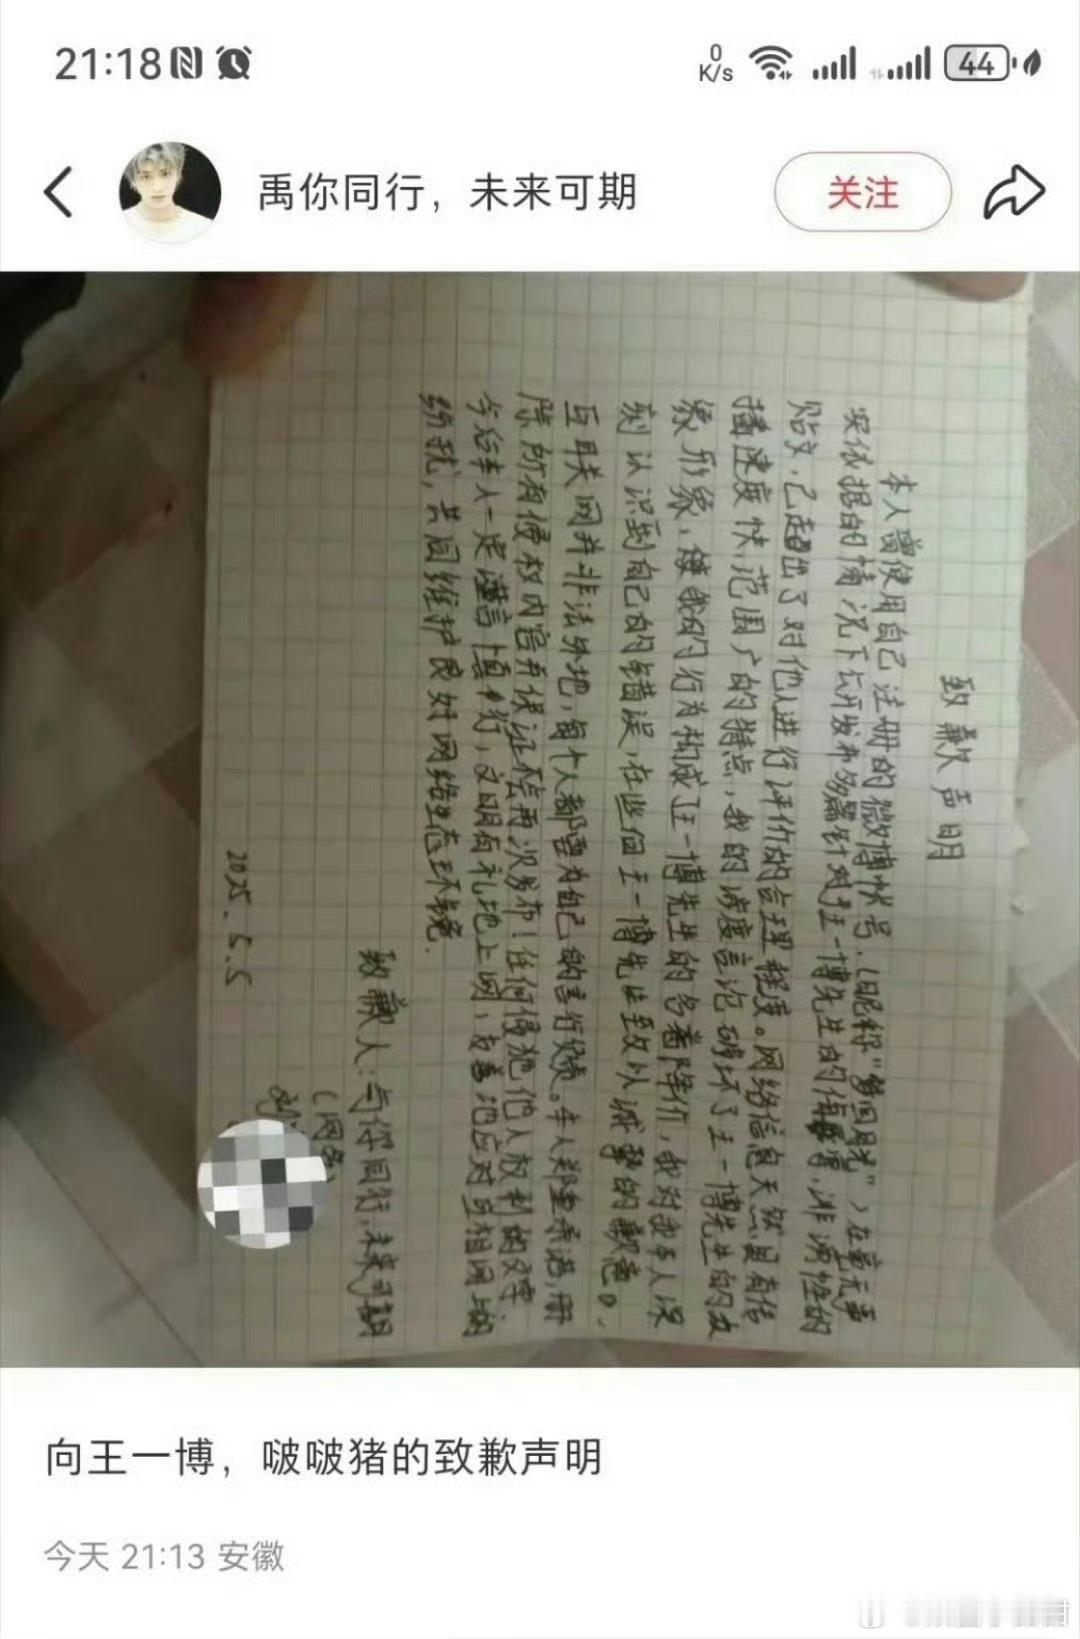 21:18
0
K/s
44
禹你同行，未来可期
关注
致歉声明
本人曾使用自己注册的微博帐号.（昵称"梦回晨光"）在毫无事
实依据的情况下公开发布多篇针对王一博先生的侮辱,诽谤性的
贴文,已超出了对他人进行评价的合理程度。网络信息天然具有传
播速度快,范围广的特点,我的过度言论破坏了王一博先生的公
众形象,使我的行为构成王一博先生的名誉降价,我对我本人深
刻认识到自己的错误,在此向王一博先生致以诚挚的歉意。
互联网并非法外地,每个人都要为自己的言行负责。本人郑重承诺,删
除所有侵权内容并保证不会再次发布!任何侵犯他人权利的文字;
今后本人一定谨言慎行,文明有礼地上网,友善地应对互相网上的
纷扰,共同维护良好网络生态环境.
致歉人:与你同行,未来可期
(网名)
2025.5.5
向王一博，啵啵猪的致歉声明
今天 21:13 安徽